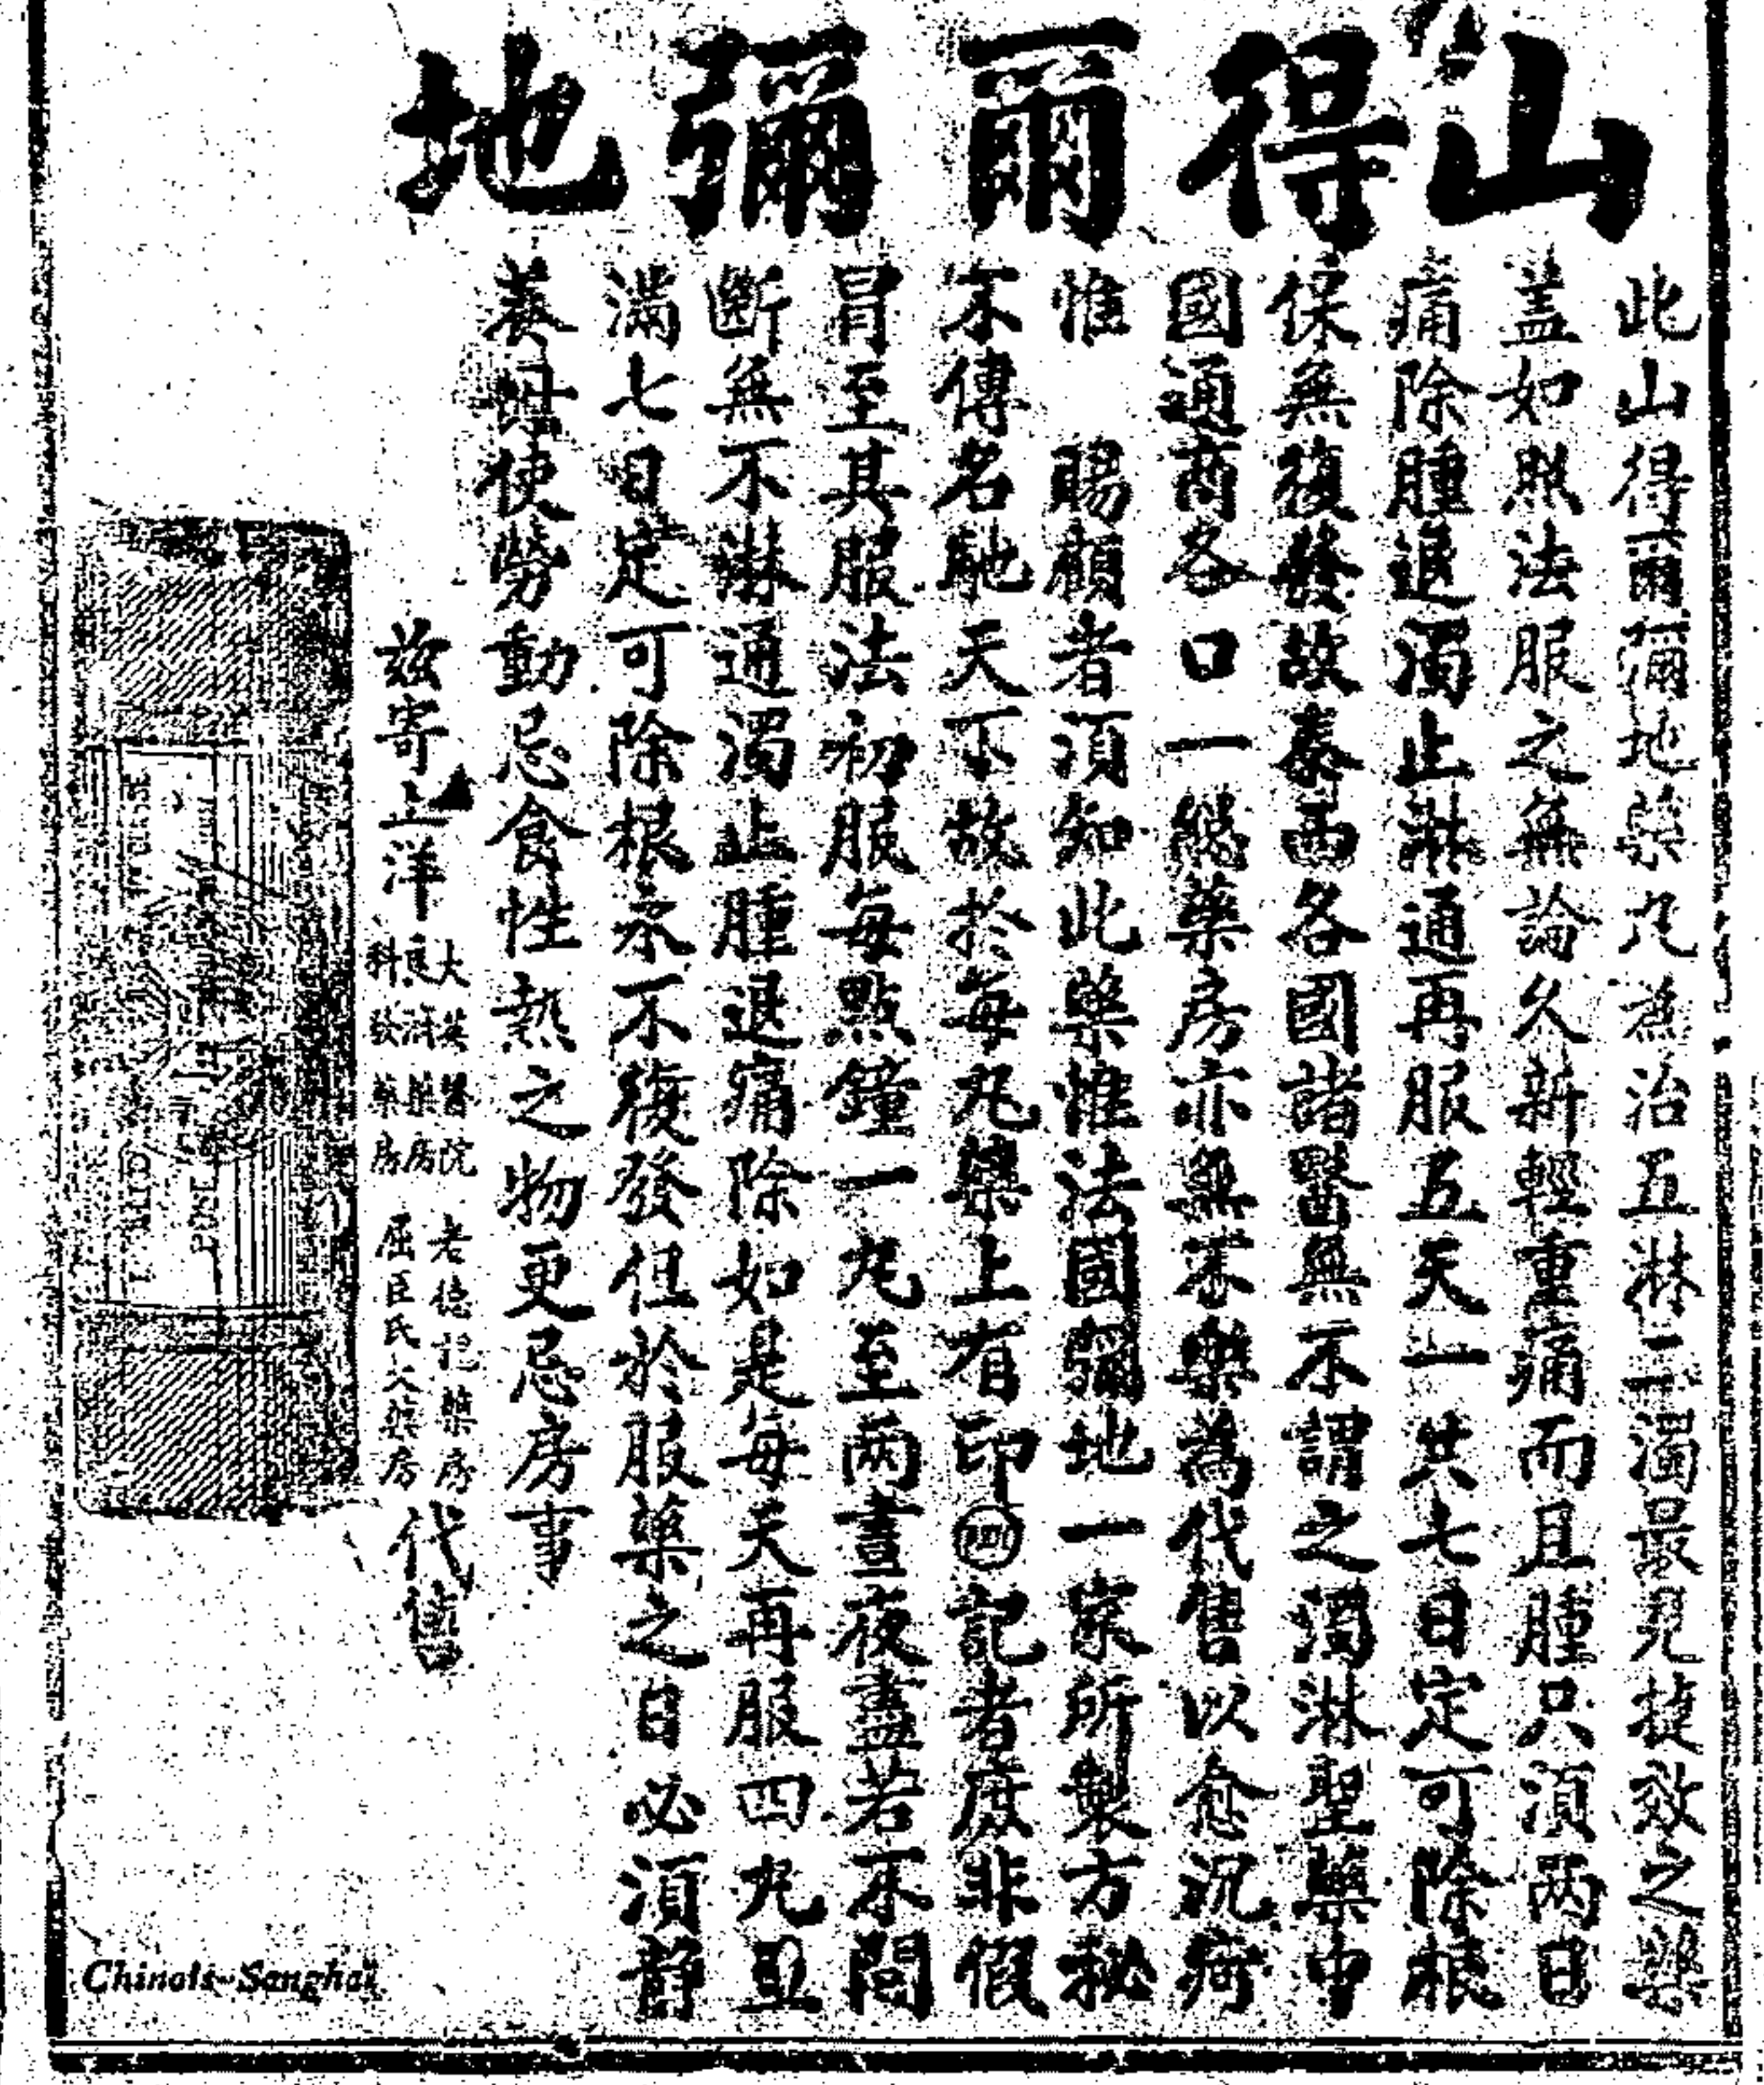 山得爾彌地
此山得爾彌地藥丸為治五淋二濁最見捷效之藥
蓋如照法服之無論久新輕重痛而且腫只須兩日
痛除腫退濁止淋通再服五天一共七日定可除根
保無復發故泰西各國諸醫無不謂之濁淋聖藥中
國通商各口一總藥房亦無不樂為代售以愈沉疴
惟 賜顧者須知此藥惟法國彌地一家所製方秘
不傳名馳天下故於每丸藥上有印 記者庶非假
冒至其服法初服每點鐘一丸至兩晝夜盡若不間
斷無不淋通濁止腫退痛除如是每天再服四丸且
滿七日定可除根永不復發但於服藥之日必須靜
養毋使勞動忌食性熱之物更忌房事
茲寄上洋
大英醫院
良濟藥房
科發藥房
老德記藥房
屈臣氏大藥房
代售
Chinois-Sanghai